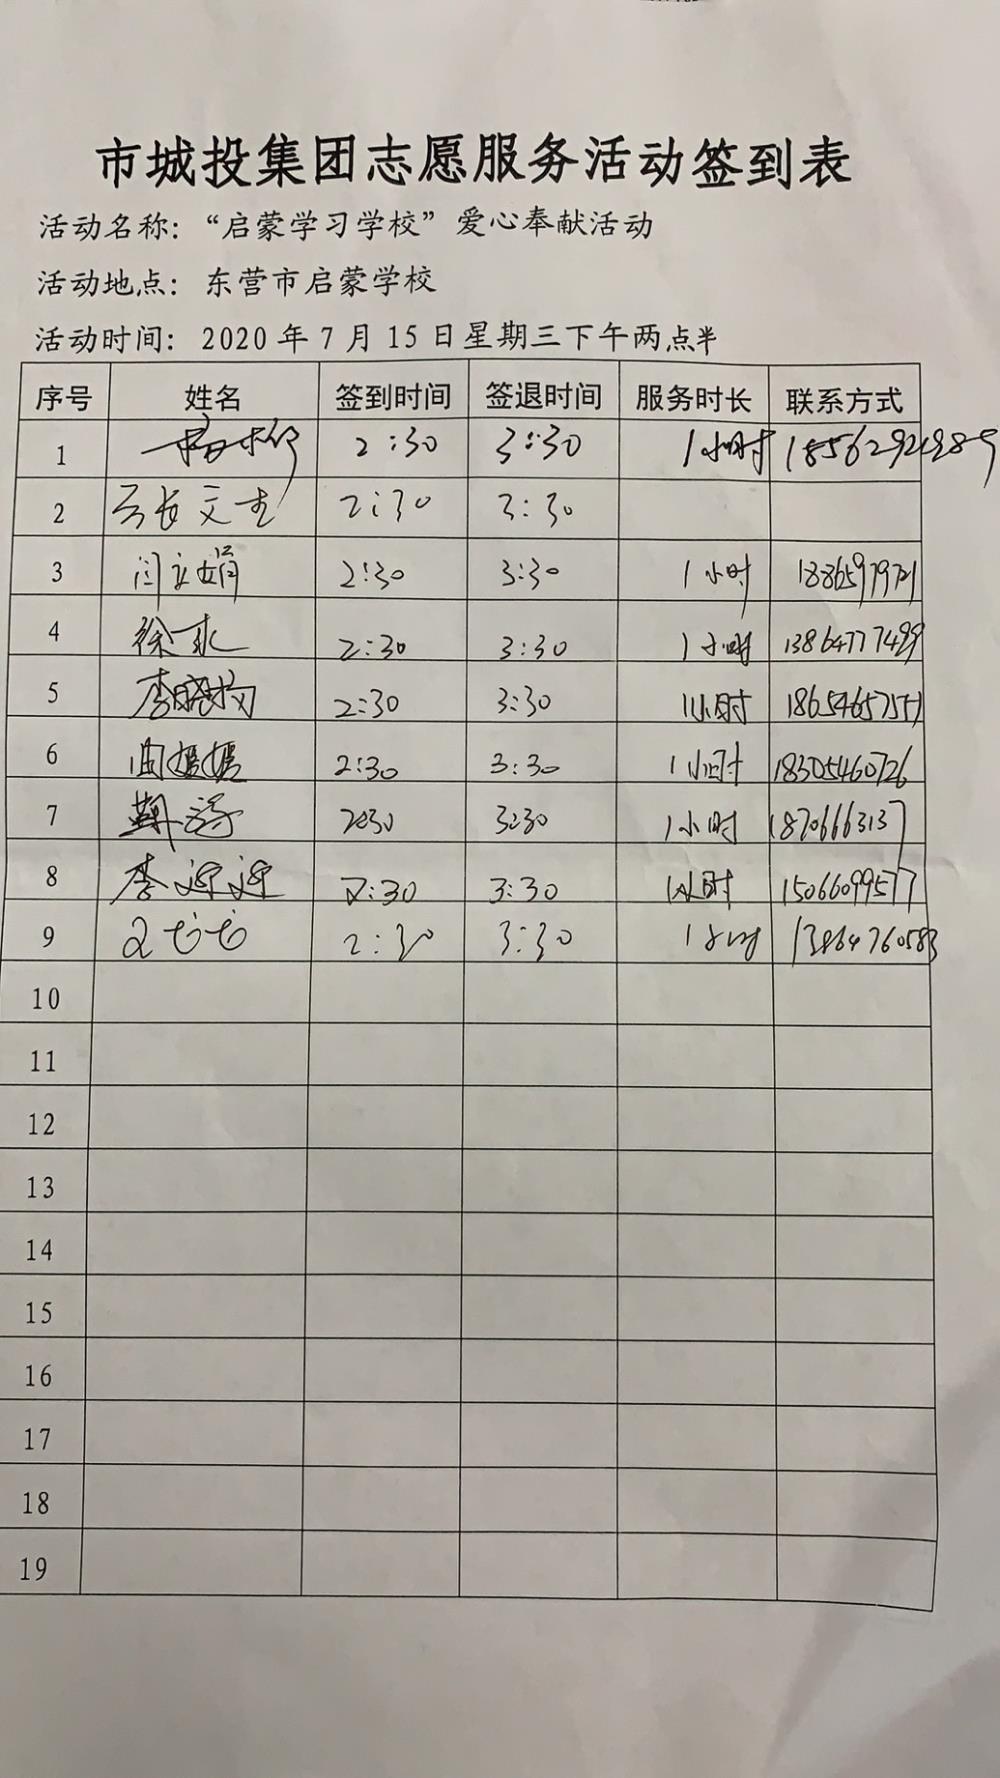 市城投集团志愿服务活动签到表
活动名称：“启蒙学习学校”爱心奉献活动
活动地点：东营市启蒙学校
活动时间：2020年7月15日星期三下午两点半
序号 姓名 签到时间 签退时间 服务时长 联系方式
1 2:30 3:30 1小时
2 2:30 3:30
3 闫立娟 2:30 3:30 1小时
4 徐一秋 2:30 3:30 1小时 13864777499
5 2:30 3:30 1小时
6 曲媛媛 2:30 3:30 1小时 18305460726
7 2:30 3:30 1小时 18706663137
8 李迎迎 2:30 3:30 1小时 15066099577
9 2:30 3:30 1小时 13864760583
10
11
12
13
14
15
16
17
18
19